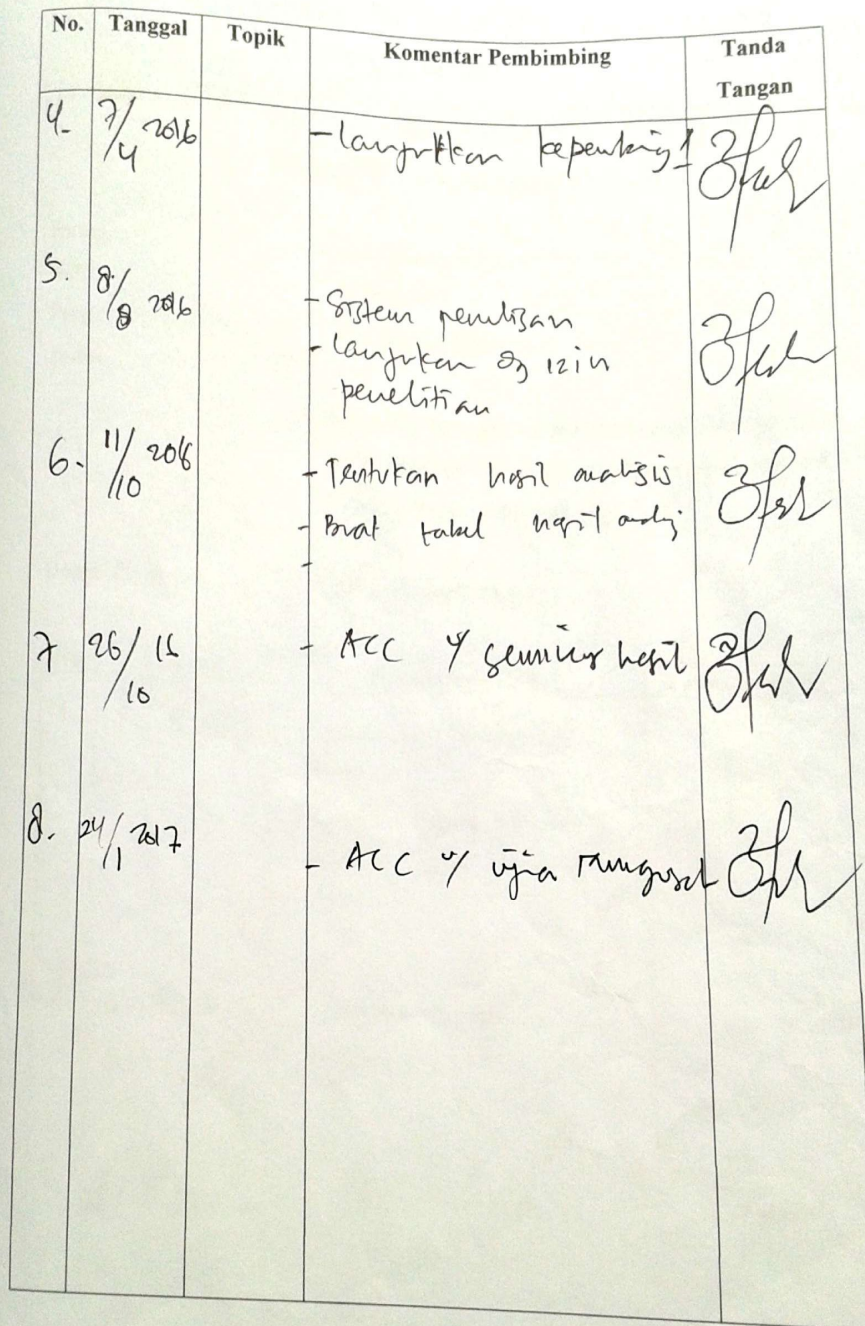 No. Tanggal Topik Komentar Pembimbing Tanda Tangan
4. 7/4 2016 - Lanjutkan kepembing 1
5. 8/8 2016 - Sistem penulisan
- Lanjutkan dg izin
penelitian
6. 11/10 2016 - Tentukan hasil analisis
- Buat tabel hasil
-
7 26/10 16 - ACC u/ seminar hasil
8. 24/1 2017 - ACC u/ ujian